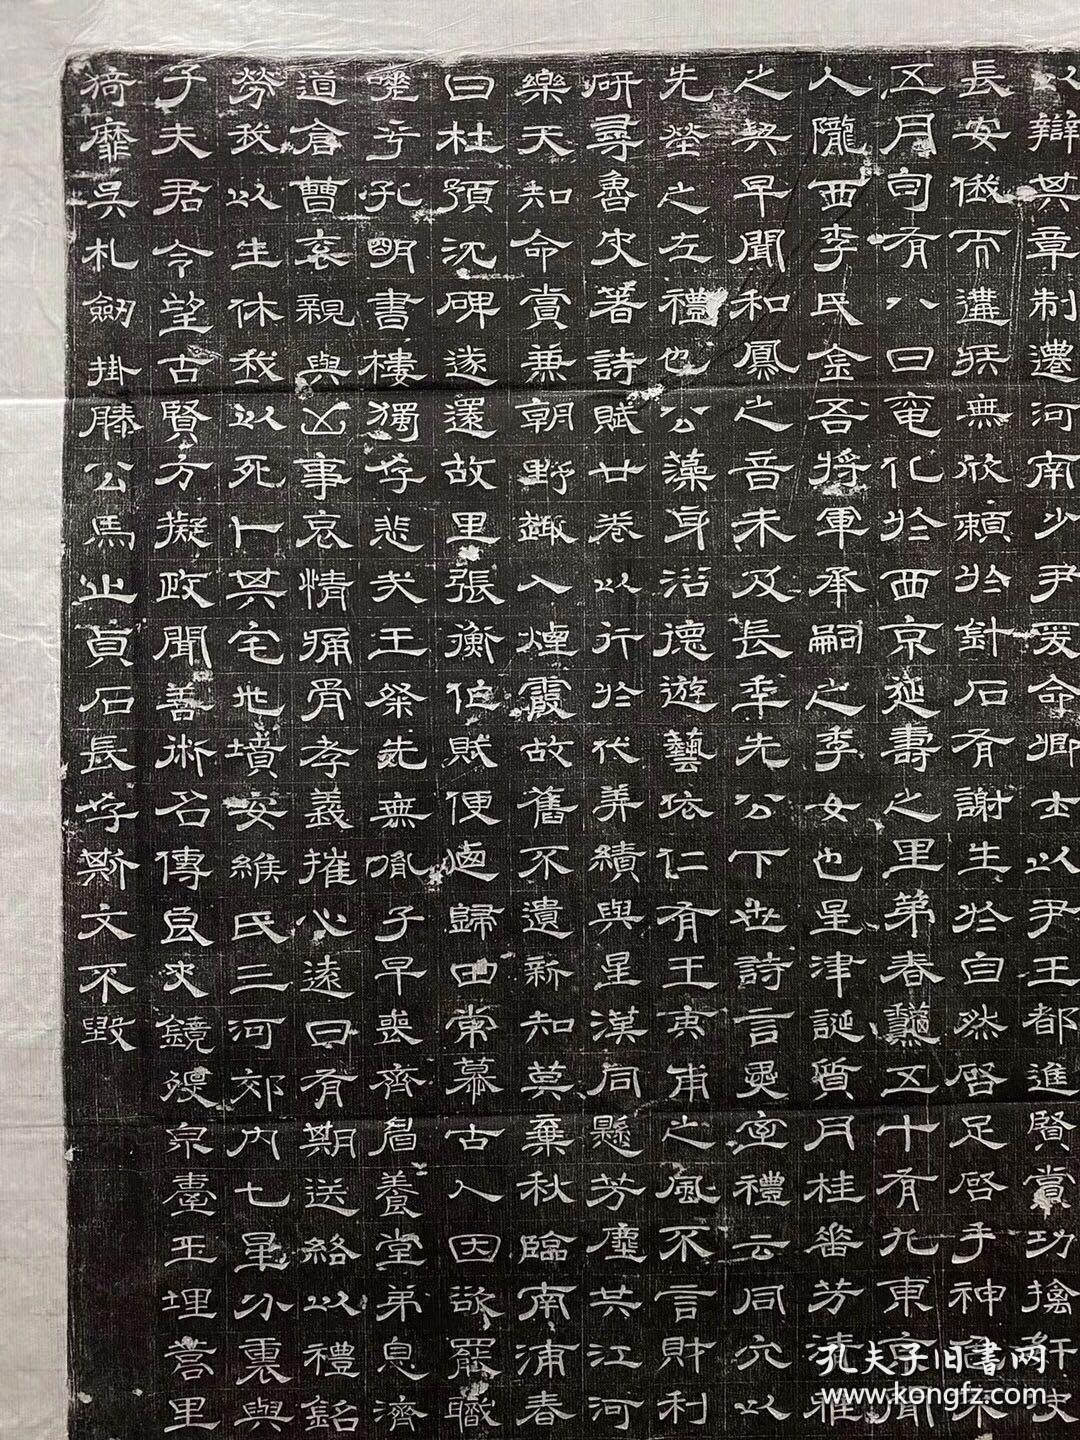 以辯其章制遷河南少尹爰命卿士以尹王都進賢賞功擒奸
長安俄而遘疾無欣賴於針石有謝生於自然啓足啓手神色不
五月旬有八日奄化於西京延壽之里第春龝五十有九東京聞
人隴西李氏金吾將軍承嗣之季女也星津誕質月桂蕃芳清雅
之契早聞和鳳之音未及長年先公下世詩言異室禮云同穴以
先塋之左禮也公藻身浴德遊藝依仁有王寅甫之風不言財利
研尋魯史著詩賦廿卷以行於代 績與星漢同懸芳塵共江河
樂天知命賞兼朝野趣入煙霞故舊不遺新知莫棄秋臨南浦春
曰杜預沉碑遂還故里張衡作賦便適歸田常慕古人因欲罷職
嗟乎孔明書樓獨存悲夫王粲先無胤子早喪齊眉養堂弟息濟
道倉曹哀親與凶事哀情痛骨孝義摧心遠日有期送絡以禮銘
勞我以生休我以死卜其宅地墳安維氏三河郊內七里 裏與
子夫君令望古賢方擬政聞善術名傳良史鏡殁泉臺玉埋蒿里
猗靡吳札劍掛滕公馬止貞石長存斯文不毀
孔夫子旧書网
www.kongfz.com